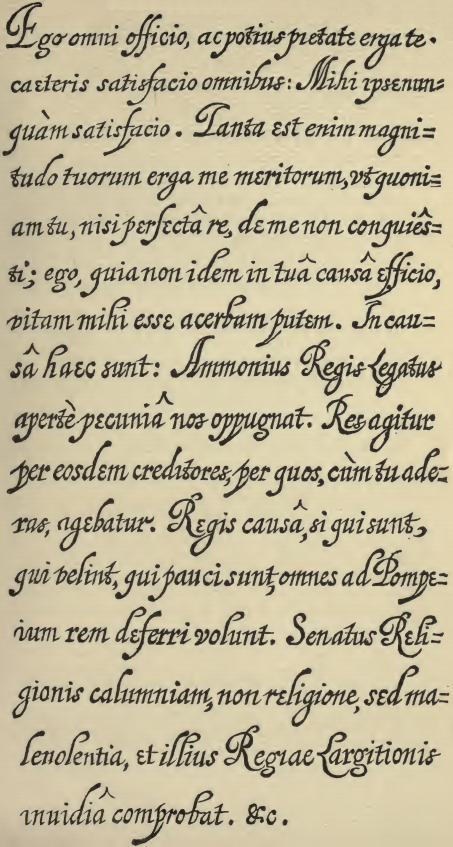 Ego omni officio, ac potius pietate erga te.
caeteris satisfacio omnibus: Mihi ipse nun=
quàm satisfacio. Tanta est enim magni=
tudo tuorum erga me meritorum, vt quoni=
am tu, nisi perfectâ re, de me non conquiês=
ti; ego, quia non idem in tuâ causâ efficio,
vitam mihi esse acerbam putem. In cau=
sâ haec sunt: Ammonius Regis Legatus
apertè pecuniâ nos oppugnat. Res agitur
per eosdem creditores, per quos, cùm tu ade=
ras, agebatur. Regis causâ, si qui sunt,
qui velint, qui pauci sunt, omnes ad Pompe=
ium rem deferri volunt. Senatus Reli=
gionis calumniam, non religione, sed ma=
leuolentia, et illius Regiae Largitionis
inuidiâ comprobat. &c.